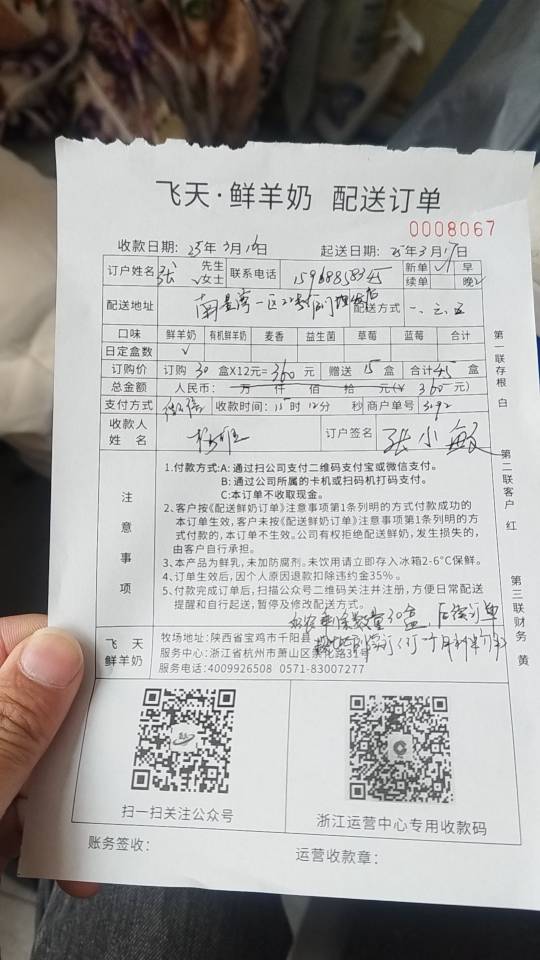 飞天·鲜羊奶 配送订单
0008067
收款日期: 25年3月16日 起送日期: 25年3月17日
订户姓名 张 先生 √女士 联系电话 15968858345 新单√ 早 续单 晚√
配送地址 南 湾一区22 配送方式 一、三、五
口味 鲜羊奶 有机鲜羊奶 麦香 益生菌 草莓 蓝莓 合计
日定盒数 √
订购价 订购 30 盒X12元=360 元 赠送 15 盒 合计45 盒
总金额 人民币: 万 仟 佰 拾 元(¥ 360 元)
支付方式 微信 收款时间: 15时 12分 秒 商户单号 3192
收款人姓名 订户签名 张小敏
注意事项
1.付款方式:A: 通过扫公司支付二维码支付宝或微信支付。
B: 通过公司所属的卡机或扫码机打码支付。
C:本订单不收取现金。
2.客户按《配送鲜奶订单》注意事项第1条列明的方式付款成功的
本订单生效, 客户未按《配送鲜奶订单》注意事项第1条列明的方
式付款的, 本订单不生效。公司有权拒绝配送鲜奶, 发生损失的,
由客户自行承担。
3.本产品为鲜乳, 未加防腐剂。未饮用请立即存入冰箱2-6°C保鲜。
4.订单生效后, 因个人原因退款扣除违约金35%。
5.付款完成订单后, 扫描公众号二维码关注并注册, 方便日常配送
提醒和自行起送, 暂停及修改配送方式。
数量30盒 订单
飞天鲜羊奶
牧场地址:陕西省宝鸡市千阳县
服务中心:浙江省杭州市萧山区崇化路31号
服务电话:4009926508 0571-83007277
扫一扫关注公众号
浙江运营中心专用收款码
账务签收:
运营收款章:
第一联存根 白
第二联客户 红
第三联财务 黄